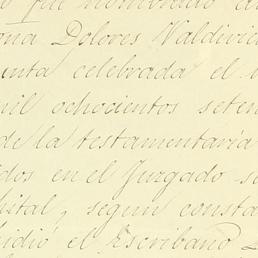 fue nombrado
Dolores Valdivie
unta celebrada el
mil ochocientos seten
de la testamentaría
dos en el Juzgado s
pital, segun consta
pidió el Escribano